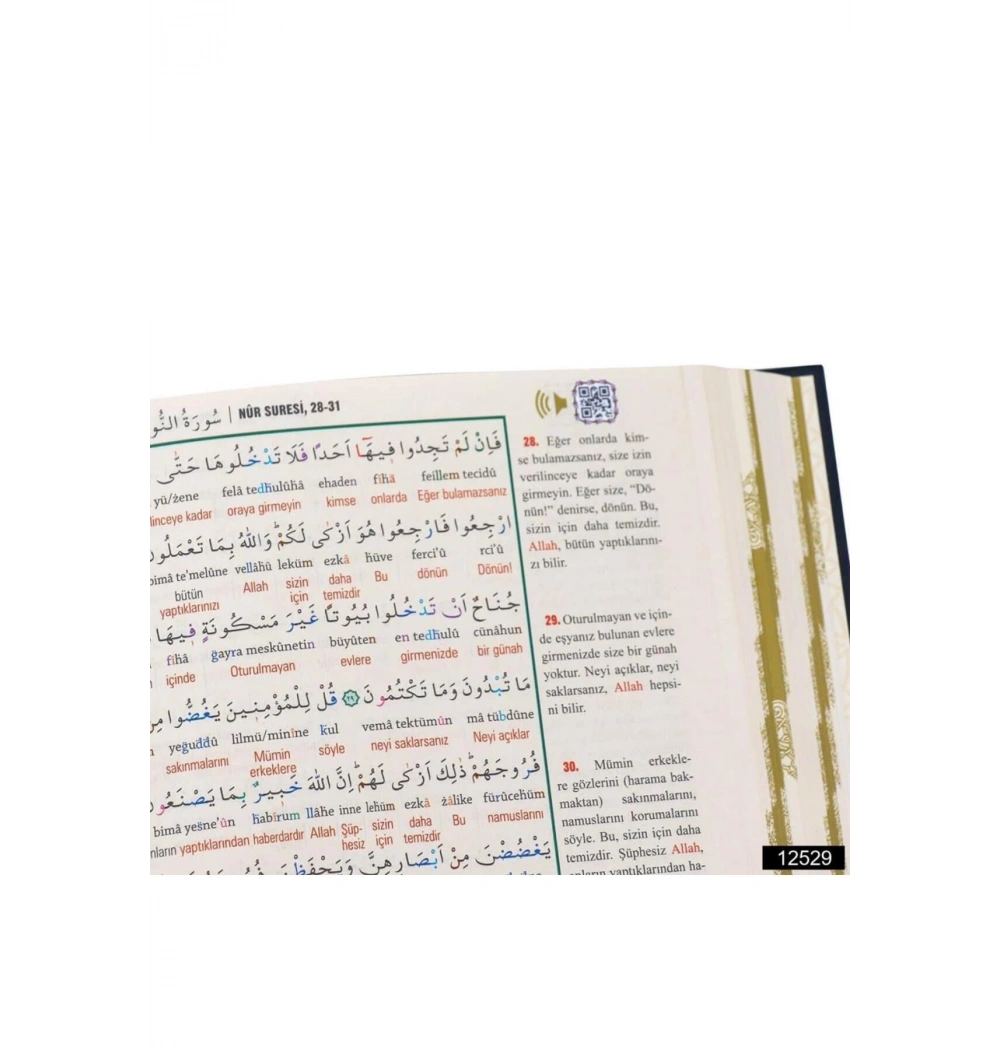 سُورَةُ النُّو | NÛR SURESİ, 28-31
فَاِنْ لَمْ تَجِدُوا فٖيهَٓا اَحَدًا فَلَا تَدْخُلُوهَا حَتّٰى
yü/żene felâ tedḣulûhâ ehaden fîhâ feillem tecidû
linceye kadar oraya girmeyin kimse onlarda Eğer bulamazsanız
ارْجِعُوا فَارْجِعُوا هُوَ اَزْكٰى لَكُمْ وَاللّٰهُ بِمَا تَعْمَلُونَ
bimâ te'melûne vellâhü leküm ezkâ hüve ferci'û rci'û
bütün Allah sizin daha Bu dönün Dönün!
yaptıklarınızı için temizdir
جُنَاحٌ اَنْ تَدْخُلُوا بُيُوتًا غَيْرَ مَسْكُونَةٍ فٖيهَا
fîhâ ğayra meskûnetin büyûten en tedḣulû cünâhun
içinde Oturulmayan evlere girmenizde bir günah
مَا تُبْدُونَ وَمَا تَكْتُمُونَ ﴿٢٩﴾ قُلْ لِلْمُؤْمِنٖينَ يَغُضُّوا مِنْ
yeğuddû lilmü/minîne kul vemâ tektümûn mâ tübdûne
sakınmalarını Mümin söyle neyi saklarsanız Neyi açıklar
erkeklere
فُرُوجَهُمْ ذٰلِكَ اَزْكٰى لَهُمْ اِنَّ اللّٰهَ خَبٖيرٌ بِمَا يَصْنَعُونَ
bimâ yesne'ûn ḣabîrum llâhe inne lehüm ezkâ żâlike fürûcehüm
nların yaptıklarından haberdardır Allah Şüp- sizin daha Bu namuslarını
hesiz için temizdir
يَغْضُضْنَ مِنْ اَبْصَارِهِنَّ وَيَحْفَظْنَ
28. Eğer onlarda kim-
se bulamazsanız, size izin
verilinceye kadar oraya
girmeyin. Eğer size, “Dö-
nün!” denirse, dönün. Bu,
sizin için daha temizdir.
Allah, bütün yaptıklarını-
zı bilir.
29. Oturulmayan ve için-
de eşyanız bulunan evlere
girmenizde size bir günah
yoktur. Neyi açıklar, neyi
saklarsanız, Allah hepsi-
ni bilir.
30. Mümin erkekle-
re gözlerini (harama bak-
maktan) sakınmalarını,
namuslarını korumalarını
söyle. Bu, sizin için daha
temizdir. Şüphesiz Allah,
onların yaptıklarından ha-
12529